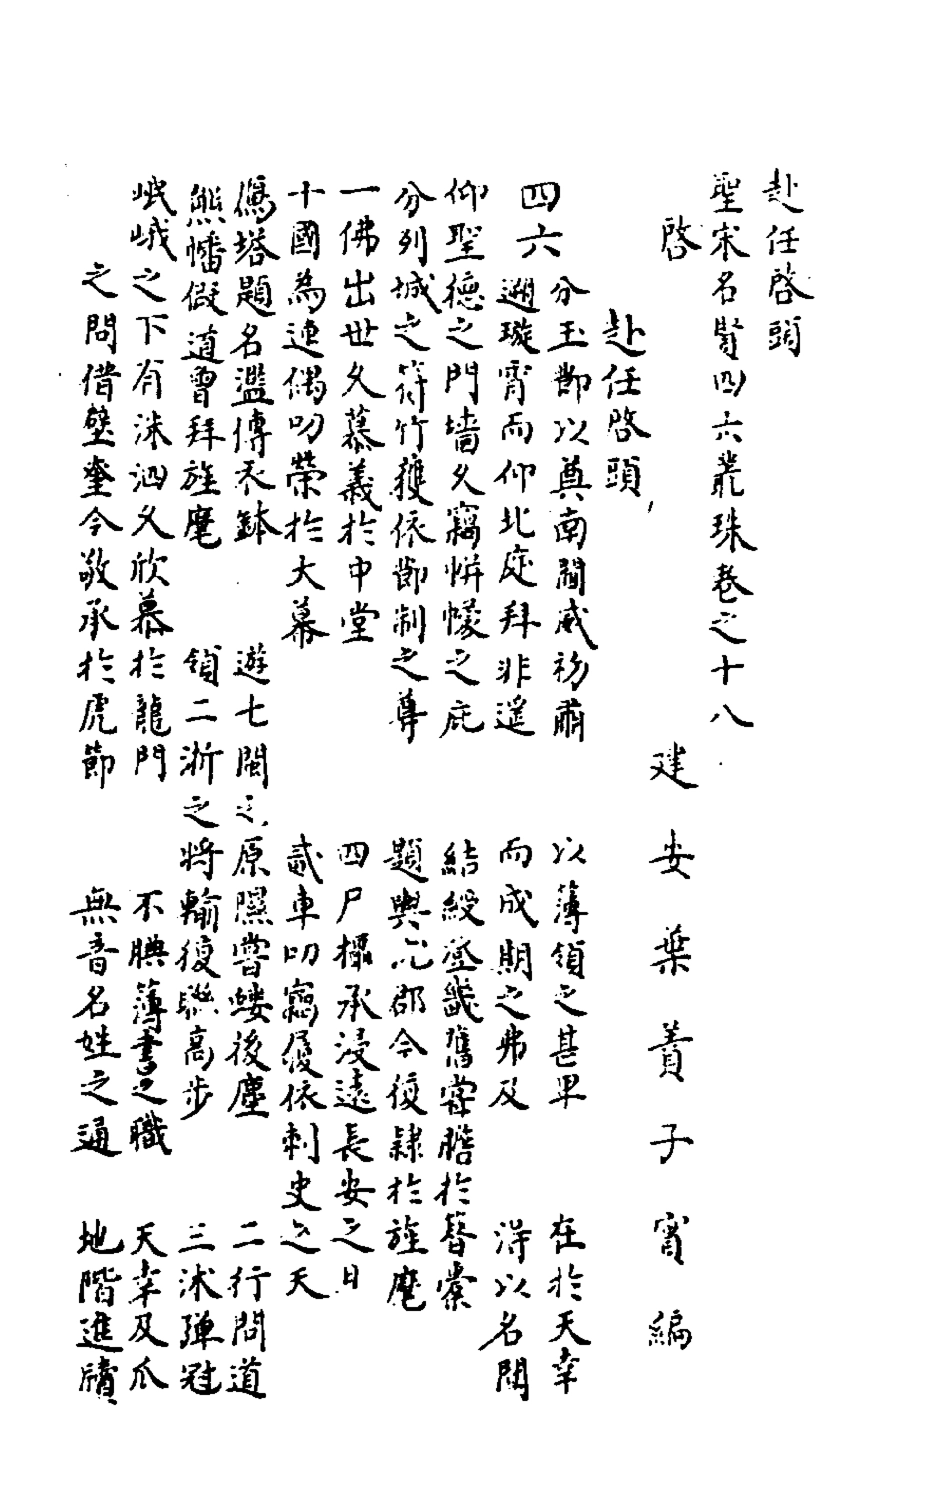 赴任啓頭
聖宋名賢四六叢珠卷之十八
建安葉蕡子實編
啓
赴任啓頭
四六
分玉節以奠南閩威初肅 以薄領之甚卑 在於天幸
遡璇霄而仰北庭拜非遥 而成期之弗及 得以名聞
仰聖德之門墻久竊帡幪之庇 結綬登畿舊嘗瞻於簪棠
分列城之符竹獲依節制之尊 題輿 郡今復隸於旌麾
一佛出世久慕義於中堂 四尸攝承浸遠長安之日
十國為連偶叨榮於大幕 貳車叨竊復依刺史之天
鴈塔題名濫傳衣鉢 遊七閩之原隰嘗 後塵 二行問道
熊幡假道曾拜旌麾 領二浙之將輸復聯高步 三沭彈冠
峨峨之下有洙泗久欣慕於龍門 不腆薄書之職 天幸及瓜
之問借壁奎今敬承於虎節 無音名姓之通 地階進牘